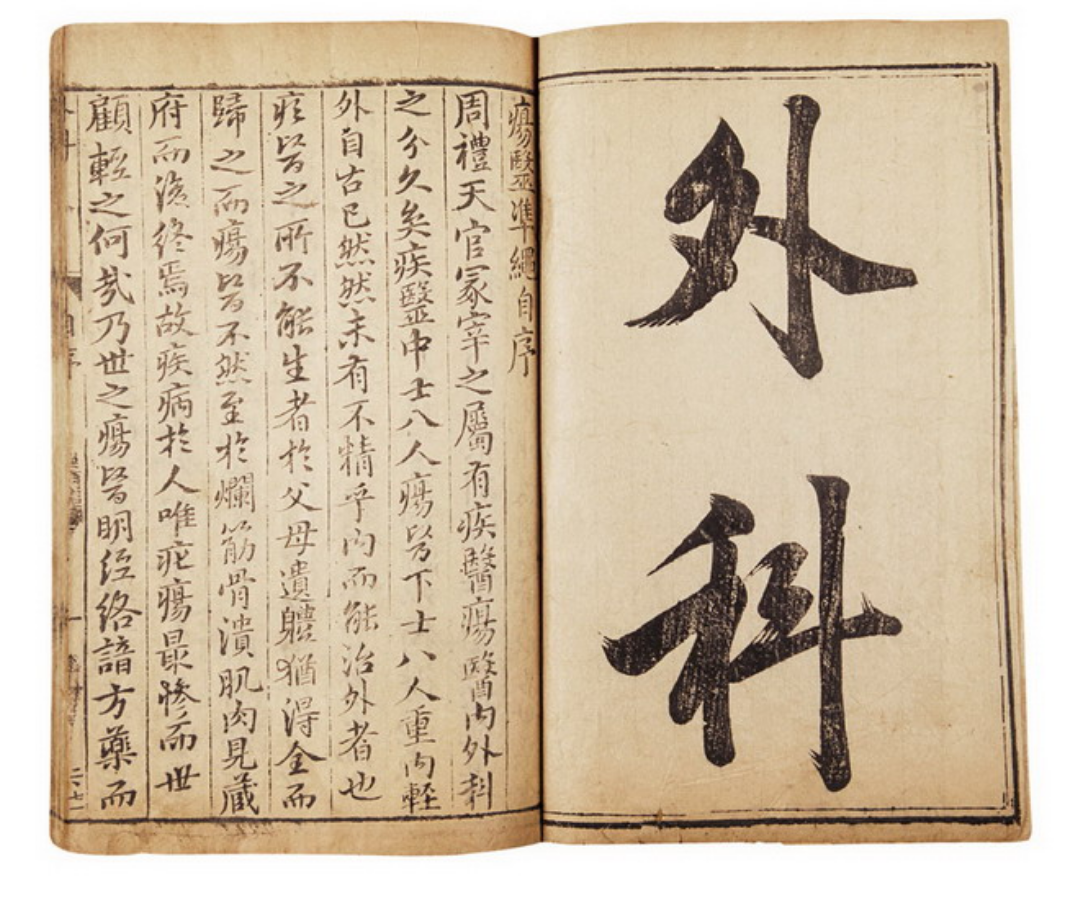 外科
瘍毉準繩自序
周禮天官冢宰之屬有疾醫瘍醫內外科
之分久矣疾毉中士八人瘍醫下士八人重內輕
外自古已然然未有不精乎內而能治外者也
疾醫之所不能生者於父母遺體猶得全而
歸之而瘍醫不然至於爛筋骨潰肌肉見藏
府而後終焉故疾病於人唯疕瘍最慘而世
顧輕之何哉乃世之瘍醫明經絡諳方藥而
自序